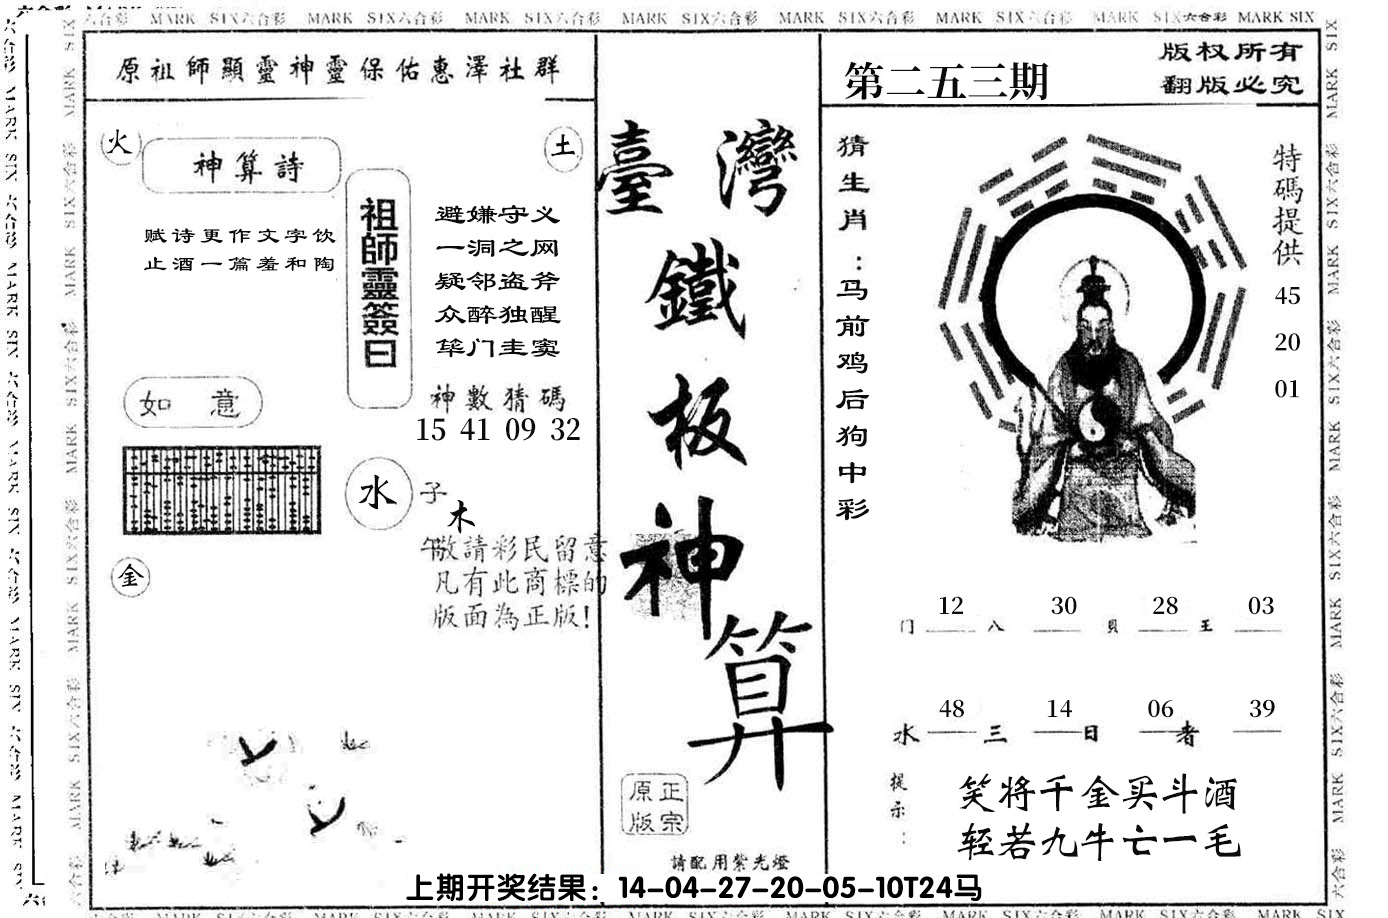 MARK SIX六合彩 MARK SIX六合彩 MARK SIX六合彩 MARK SIX六合彩 MARK SIX六合彩 MARK SIX六合彩 MARK SIX六合彩 MARK SIX
原祖師顯靈神靈保佑惠澤社群
火
土
神算詩
赋诗更作文字饮
止酒一篇羞和陶
祖師靈簽曰
避嫌守义
一洞之网
疑邻盗斧
众醉独醒
筚门圭窦
神數猜碼
15 41 09 32
如意
水
子
木
午
金
敬請彩民留意
凡有此商標的
版面為正版!
臺灣
鐵
板
神
算
正宗
原版
請配用紫光燈
第二五三期
版权所有
翻版必究
猜生肖:马前鸡后狗中彩
特碼提供
45
20
01
12 30 28 03
门 八 貝 王
48 14 06 39
水 三 日 者
提示:
笑将千金买斗酒
轻若九牛亡一毛
上期开奖结果：14-04-27-20-05-10T24马